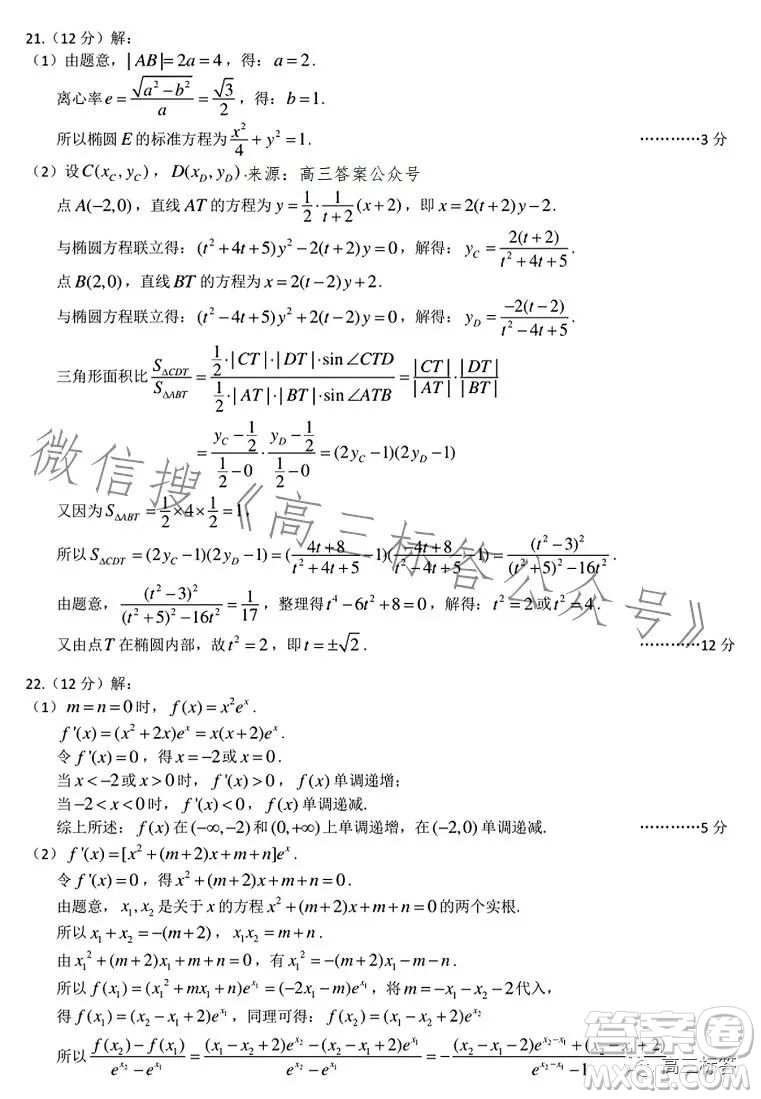 21.（12 分）解：
（1）由题意，|AB|=2a=4，得：a=2．
离心率 e=\frac{\sqrt{a^2-b^2}}{a}=\frac{\sqrt{3}}{2}，得：b=1．
所以椭圆 E 的标准方程为 \frac{x^2}{4}+y^2=1． …………3 分
（2）设 C(x_C,y_C)，D(x_D,y_D)．来源：高三答案公众号
点 A(-2,0)，直线 AT 的方程为 y=\frac{1}{2}·\frac{1}{t+2}(x+2)，即 x=2(t+2)y-2．
与椭圆方程联立得：(t^2+4t+5)y^2-2(t+2)y=0，解得：y_C=\frac{2(t+2)}{t^2+4t+5}．
点 B(2,0)，直线 BT 的方程为 x=2(t-2)y+2．
与椭圆方程联立得：(t^2-4t+5)y^2+2(t-2)y=0，解得：y_D=\frac{-2(t-2)}{t^2-4t+5}．
三角形面积比 \frac{S_{ΔCDT}}{S_{ΔABT}}=\frac{\frac{1}{2}·|CT|·|DT|·sin∠CTD}{\frac{1}{2}·|AT|·|BT|·sin∠ATB}=\frac{|CT|}{|AT|}·\frac{|DT|}{|BT|}
=\frac{y_C-\frac{1}{2}}{\frac{1}{2}-0}·\frac{y_D-\frac{1}{2}}{\frac{1}{2}-0}=(2y_C-1)(2y_D-1)
又因为 S_{ΔABT}=\frac{1}{2}×4×\frac{1}{2}=1，
所以 S_{ΔCDT}=(2y_C-1)(2y_D-1)=(\frac{4t+8}{t^2+4t+5}-1)(\frac{-4t+8}{t^2-4t+5}-1)=\frac{(t^2-3)^2}{(t^2+5)^2-16t^2}．
由题意，\frac{(t^2-3)^2}{(t^2+5)^2-16t^2}=\frac{1}{17}，整理得 t^4-6t^2+8=0，解得：t^2=2 或 t^2=4．
又由点 T 在椭圆内部，故 t^2=2，即 t=±\sqrt{2}． …………12 分
22.（12 分）解：
（1）m=n=0 时，f(x)=x^2e^x．
f'(x)=(x^2+2x)e^x=x(x+2)e^x．
令 f'(x)=0，得 x=-2 或 x=0．
当 x<-2 或 x>0 时，f'(x)>0，f(x) 单调递增；
当 -2<x<0 时，f'(x)<0，f(x) 单调递减．
综上所述：f(x) 在 (-∞,-2) 和 (0,+∞) 上单调递增，在 (-2,0) 单调递减． …………5 分
（2）f'(x)=[x^2+(m+2)x+m+n]e^x．
令 f'(x)=0，得 x^2+(m+2)x+m+n=0．
由题意，x_1,x_2 是关于 x 的方程 x^2+(m+2)x+m+n=0 的两个实根．
所以 x_1+x_2=-(m+2)，x_1x_2=m+n．
由 x_1^2+(m+2)x_1+m+n=0，有 x_1^2=-(m+2)x_1-m-n．
所以 f(x_1)=(x_1^2+mx_1+n)e^{x_1}=(-2x_1-m)e^{x_1}，将 m=-x_1-x_2-2 代入，
得 f(x_1)=(x_2-x_1+2)e^{x_1}，同理可得：f(x_2)=(x_1-x_2+2)e^{x_2}
所以 \frac{f(x_2)-f(x_1)}{e^{x_2}-e^{x_1}}=\frac{(x_1-x_2+2)e^{x_2}-(x_2-x_1+2)e^{x_1}}{e^{x_2}-e^{x_1}}=-\frac{(x_2-x_1-2)e^{x_2-x_1}+(x_2-x_1+2)}{e^{x_2-x_1}-1}
微信搜《高三标答公众号》
答案圈
高三标答